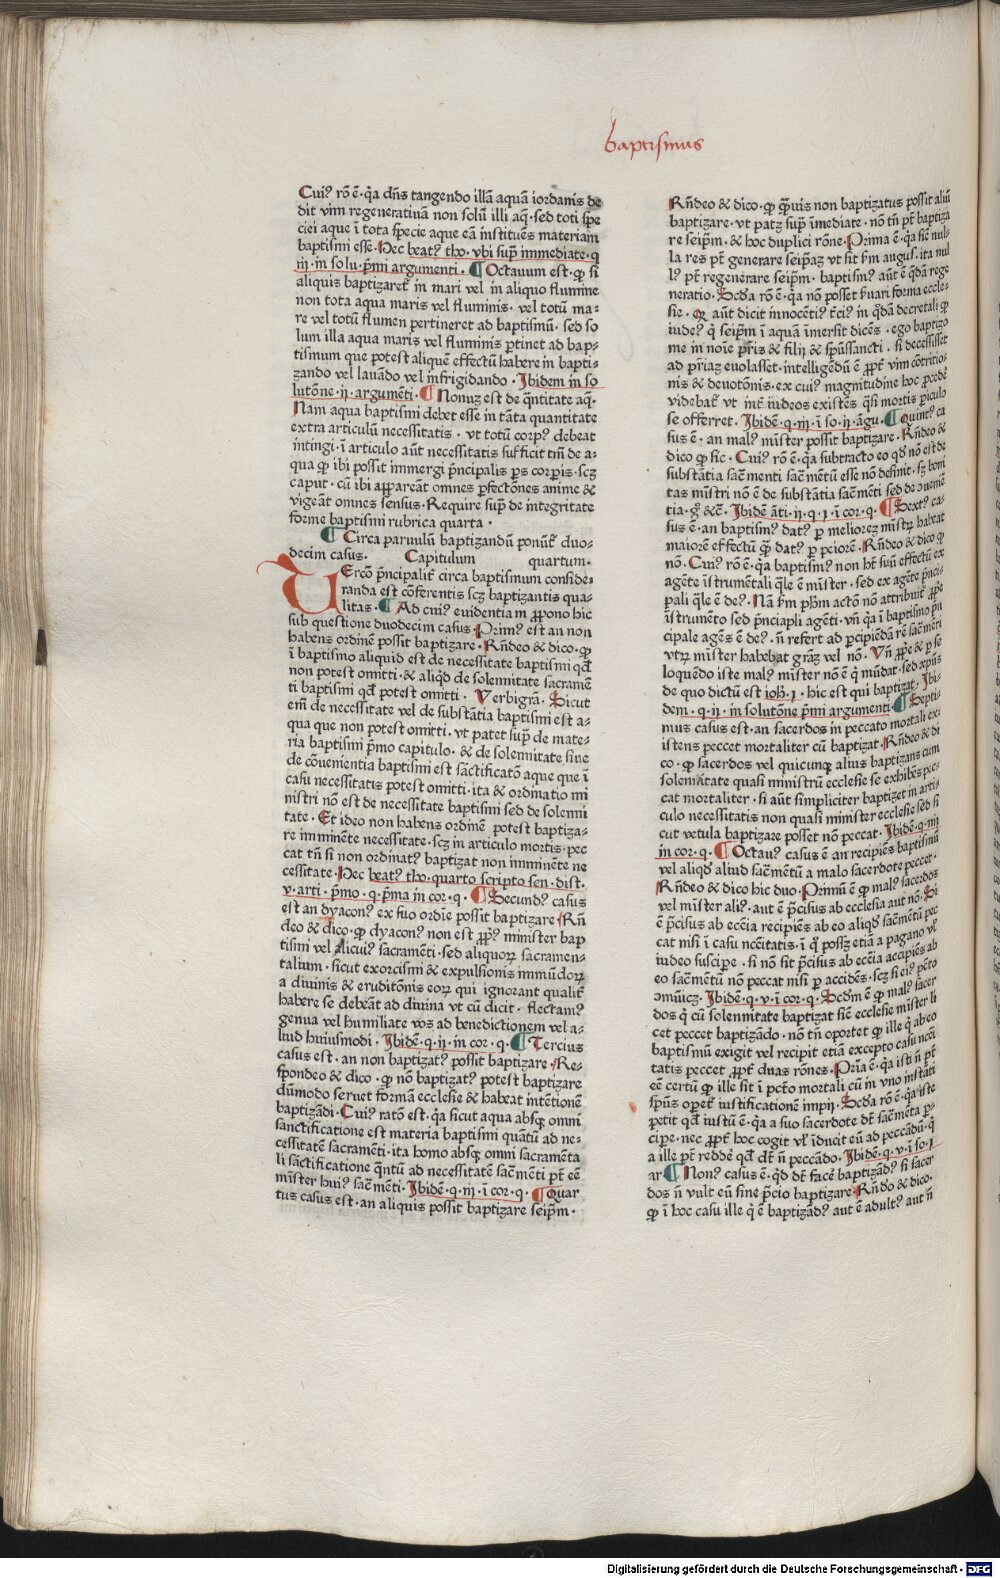 baptismus
Cuiꝰ rõ ē · q̃a dñs tangendo illā aquā iordanis de
dit vim regeneratiuā non solũ illi aq̃ · sed toti spe
ciei aque ĩ tota specie aque eā instituēs materiam
baptismi esse · Hec beatꝰ tho · vbi supͣ immediate · q
iij · in solu · p̃mi argumenti · ¶ Octauum est · ꝙ si
aliquis baptizaret᷑ in mari vel in aliquo flumine
non tota aqua maris vel fluminis · vel totũ ma⸗
re vel totũ flumen pertineret ad baptismũ · sed so
lum illa aqua maris vel fluminis ꝑtinet ad bap⸗
tismum que potest aliquē effectũ habere in bapti⸗
zando vel lauādo vel infrigidando · Ibidem in so
lutōne · ij · argumēti · ¶ Nonuꝫ est de q̃ntitate aq̃ ·
Nam aqua baptismi debet esse in tāta quantitate
extra articulũ necessitatis · vt totũ corpꝰ debeat
intingi · ĩ articulo aũt necessitatis sufficit tm̃ de a⸗
qua ꝙ ibi possit immergi p̃ncipalis ꝑs corꝑis · scꝫ
caput · cũ ibi appareāt omnes ꝑfectōnes anime &
vigeāt omnes sensus · Require supͣ de integritate
forme baptismi rubrica quarta ·
¶ Circa paruulũ baptizandũ ponũt᷑ duo⸗
decim casus · Capitulum quartum ·
VErcō p̃ncipalit᷑ circa baptismum conside⸗
randa est cōferentis scꝫ baptizantis qua⸗
litas · ¶ Ad cuiꝰ euidentiam ꝓpono hic
sub questione duodecim casus · Primꝰ est an non
habens ordinē possit baptizare · Rñdeo & dico · ꝙ
ĩ baptismo aliquid est de necessitate baptismi qd̃
non potest omitti · & aliqd̃ de solemnitate sacramē
ti baptismi qd̃ potest omitti · Verbigr̃a · Sicut
em̃ de necessitate vel de substātia baptismi est a⸗
qua que non potest omitti · vt patet supͣ de mate⸗
ria baptismi p̃mo capitulo · & de solemnitate siue
de cōuenientia baptismi est sāctificatō aque que ĩ
casu necessitatis potest omitti · ita & ordinatio mi
nistri nō est de necessitate baptismi sed de solemni
tate · Et ideo non habens ordinē potest baptiza⸗
re imminēte necessitate · scꝫ in articulo mortis · pec
cat tñ si non ordinatꝰ baptizat non imminēte ne
cessitate · Hec beatꝰ tho · quarto scripto sen · dist ·
v · arti · p̃mo · q · p̃ma in cor · q · ¶ Secundꝰ casus
est an dyaconꝰ ex suo ordie possit baptizare · Rñ
deo & dico · ꝙ dyaconꝰ non est ꝓpꝰ minister bap
tismi vel alicuiꝰ sacramēti · sed aliquoꝝ sacramen⸗
talium · sicut exorcismi & expulsionis immūdoꝝ
a diuinis & eruditōnis eoꝝ qui ignorant qualit᷑
habere se debeāt ad diuina vt cũ dicit · flectamꝰ
genua vel humiliate vos ad benedictionem vel a⸗
liud huiusmodi · Ibidē · q · ij · in cor · q · ¶ Tercius
casus est · an non baptizatꝰ possit baptizare · Re⸗
spondeo & dico · ꝙ nō baptizatꝰ potest baptizare
dūmodo seruet formā ecclesie & habeat intētionē
baptizādi · Cuiꝰ ratō est · q̃a sicut aqua absqꝫ omni
sanctificatione est materia baptismi quātũ ad ne⸗
cessitatē sacramēti · ita homo absqꝫ omni sacramēta
li sāctificatione q̃ntũ ad necessitatē sac̃mēti pt̃ eē
mĩster huiꝰ sac̃mēti · Ibidē · q · iij · ĩ cor · q · ¶ Quar
tus casus est · an aliquis possit baptizare seipm̃ ·
Rñdeo & dico · ꝙ q̃uis non baptizatus possit aliũ
baptizare · vt patꝫ supͣ ĩmediate · nō tñ pt̃ baptiza
re seipm̃ · & hoc duplici rōne · Prima ē · q̃a sic̃ nul⸗
la res pt̃ generare seipaꝫ vt sit s̃m augus · ita nul
lꝰ pt̃ regenerare seipm̃ · baptismꝰ aũt ē q̃dā rege
neratio · Scd̃a rō ē · q̃a nō posset s̃uari forma eccle⸗
sie · aũt dicit innocētiꝰ t̃ciꝰ in q̃dā decretali ꝙ
iudeꝰ q̃ seipm̃ ĩ aquā ĩmersit dicēs · ego baptizo
me in noĩe pr̃is & filij & sp̃ussancti · si decessisset
ad pr̃iaꝫ euolasset · intelligēdũ ē ꝓpt̃ vim cōtritio⸗
nis & deuotōnis · ex cuiꝰ magnitudine hoc ꝓcede̅
videbat᷑ vt int̃ iudeos existēs q̃si mortis ꝑiculo
se offerret · Ibidē · q · iij · ĩ so · ij · āgu · ¶ Quintꝰ ca
sus ē · an malꝰ mĩster possit baptizare · Rñdeo &
dico ꝙ sic · Cuiꝰ rō ē · q̃a subtracto eo qd̃ nō est de
substātia sac̃menti sac̃mētũ esse nō desinit · sꝫ boni
tas mĩstri nō ē de substātia sac̃mēti sed de ꝯuenie̅
tia · g̊ &c̃ · Ibidē āti · ij · q · j · ĩ cor · q · ¶ Sextꝰ ca⸗
sus ē · an baptismꝰ datꝰ ꝑ melioreꝫ mĩstꝝ habeat
maiorē effectũ q̃ datꝰ ꝑ peiorē · Rñdeo & dico ꝙ
nō · Cuiꝰ rō ē · q̃a baptismꝰ non ht̃ suũ effectũ ex
agēte ĩstrumētali q̃le ē mĩster · sed ex agēte p̃nci⸗
pali q̃le ē deꝰ · Nā s̃m ph̃m actō nō attribuit᷑ ꝓpe
ĩstrumēto sed p̃nciapli agēti · vñ q̃a ĩ baptismo p̃n
cipale agēs ē deꝰ · ñ refert ad ꝑcipiēdā rē sac̃mēti
vtꝝ mĩster habebat gr̃aꝫ vel nō · Vñ ꝓpe & ꝑ se
loquēdo iste malꝰ mĩster nō ē q̃ mũdat · sed xp̃us
de quo dictũ est ioh̃ · j · hic est qui baptizat · Ibi⸗
dem · q · ij · in solutōne p̃mi argumenti · ¶ Septi⸗
mus casus est · an sacerdos in peccato mortali ex⸗
istens peccet mortaliter cũ baptizat · Rñdeo & di
co · ꝙ sacerdos vel quicunqꝫ alius baptizans cum
solemnitate quasi ministrũ ecclesie se exhibēs pec⸗
cat mortaliter · si aũt simpliciter baptizet in arti⸗
culo necessitatis non quasi minister ecclesie sed si
cut vetula baptizare posset nō peccat · Ibidē · q · iij
in cor · q · ¶ Octauꝰ casus ē an recipiēs baptismũ
vel aliqd̃ aliud sac̃mētũ a malo sacerdote peccet ·
Rñdeo & dico hic duo · Primũ ē ꝙ malꝰ sacerdos
vel mĩster aliꝰ · aut ē p̃cisus ab ecclesia aut nō · Si
ē p̃cisus ab ecc̃ia recipiēs ab eo aliqd̃ sac̃mētũ pec
cat nisi ĩ casu nc̃citatis · ĩ q̊ possꝫ etiā a pagano vl̃
iudeo suscipe · si nō sit p̃cisus ab ecc̃ia accipiēs ab
eo sac̃mētũ nō peccat nisi ꝑ accidēs · scꝫ si eiꝰ pc̃to
ꝯmũicꝫ · Ibidē · q · v · ĩ cor · q · Scd̃m ē ꝙ malꝰ sacer
dos q̃ cũ solennitate baptizat sic̃ ecclesie mĩster li
cet peccet baptizādo · nō tñ oportet ꝙ ille q̃ ab eo
baptismũ exigit vel recipit etiā excepto casu ncc̃i
tatis peccet ꝓpt̃ duas rōnes · Pr̃ia ē · q̃a isti ñ pt̃
eē certũ ꝙ ille sit ĩ pc̃to mortali cũ in vno instāti
sp̃us opet᷑ iustificationē impij · Scd̃a rō ē · q̃a iste
petit qd̃ iustũ ē · q̃a a suo sacerdote dt̃ sac̃mēta ꝑ⸗
cipe · nec ꝓpt̃ hoc cogit vl̃ ĩducit eũ ad peccādũ · q̃
a ille pt̃ reddē qd̃ dt̃ ñ peccādo · Ibidē · q · v · ĩ so · j
ar · ¶ Nonꝰ casus ē · q̃d dt̃ facē baptizādꝰ si sacer
dos ñ vult eũ sine p̃cio baptizare · Rñdo & dico ·
ꝙ ĩ hoc casu ille q̃ ē baptizādꝰ aut ē adultꝰ aut ñ
Digitalisierung gefördert durch die Deutsche Forschungsgemeinschaft - DFG